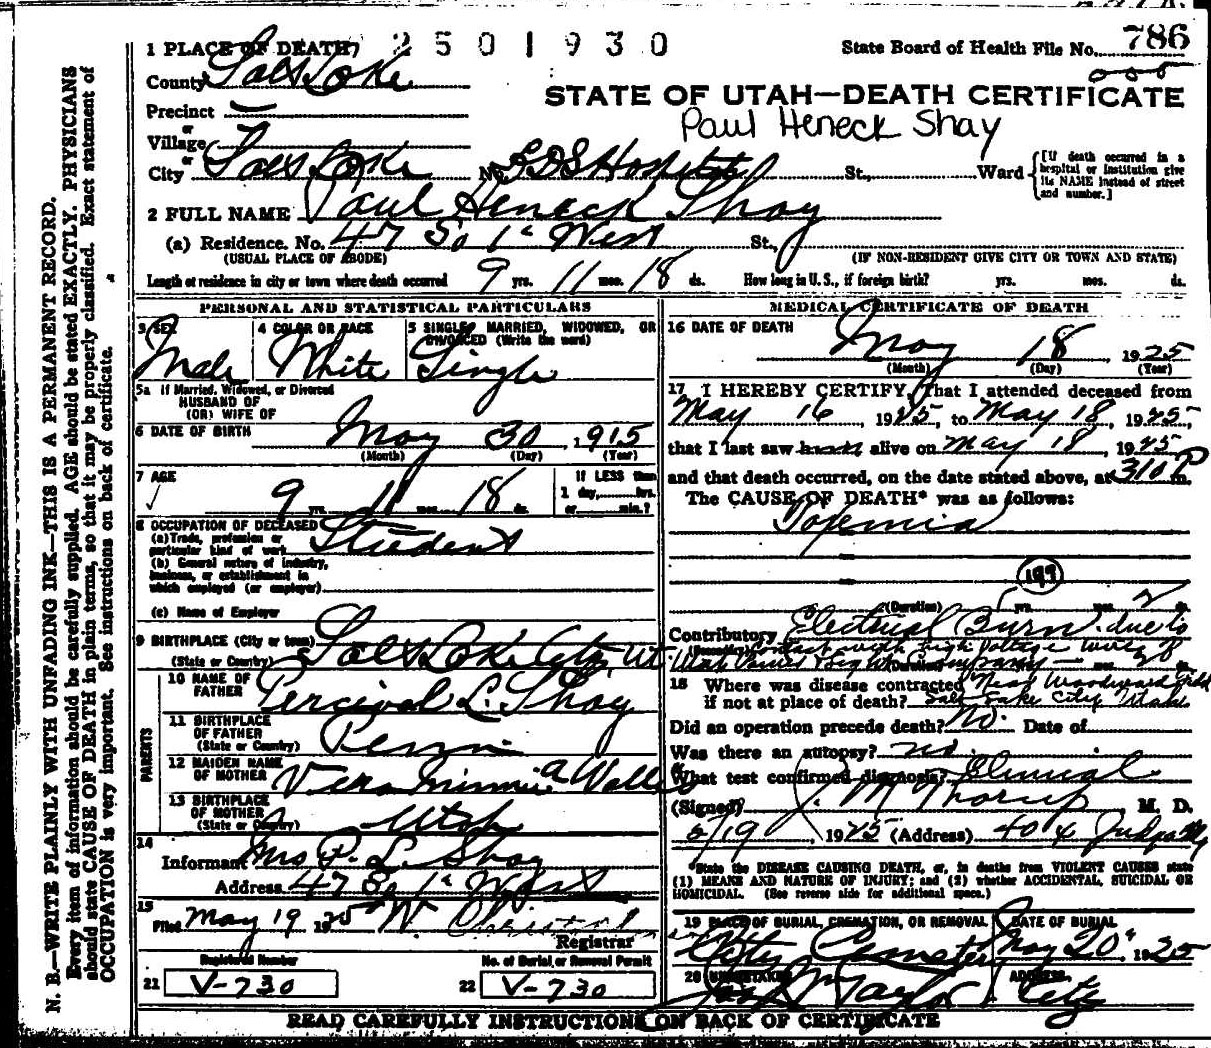 2501930
State Board of Health File No. 786
1 PLACE OF DEATH
County Salt Lake
STATE OF UTAH—DEATH CERTIFICATE
Precinct
Paul Heneck Shay
or
Village
or
City Salt Lake No. LDS Hospital St., Ward [If death occurred in a hospital or institution give its NAME instead of street and number.]
2 FULL NAME Paul Heneck Shay
(a) Residence. No. 47 So 1st West St.,
(USUAL PLACE OF ABODE) (IF NON-RESIDENT GIVE CITY OR TOWN AND STATE)
Length of residence in city or town where death occurred 9 yrs. 11 mos. 18 ds. How long in U. S., if foreign birth? yrs. mos. ds.
PERSONAL AND STATISTICAL PARTICULARS
3 SEX Male
4 COLOR OR RACE White
5 SINGLE, MARRIED, WIDOWED, OR DIVORCED (Write the word) Single
5a If Married, Widowed, or Divorced
HUSBAND OF
(OR) WIFE OF
6 DATE OF BIRTH May 30, 1915
(Month) (Day) (Year)
7 AGE 9 yrs. 11 mos. 18 ds.
If LESS than
1 day, hrs.
or min.?
8 OCCUPATION OF DECEASED Student
(a) Trade, profession or particular kind of work
(b) General nature of industry, business, or establishment in which employed (or employer)
(c) Name of Employer
9 BIRTHPLACE (City or town) Salt Lake City, Ut
(State or Country)
PARENTS
10 NAME OF FATHER Percival L. Shay
11 BIRTHPLACE OF FATHER
(State or Country) Penn
12 MAIDEN NAME OF MOTHER Vera Minnie
13 BIRTHPLACE OF MOTHER
(State or Country) Utah
14
Informant Mrs P. L. Shay
Address 47 So 1st West
15
Filed May 19 1925 W.
Registrar
Registered Number
21 V-730
No. of Burial or Removal Permit
22 V-730
MEDICAL CERTIFICATE OF DEATH
16 DATE OF DEATH
May 18, 1925
(Month) (Day) (Year)
17 I HEREBY CERTIFY, That I attended deceased from
May 16 1925, to May 18, 1925,
that I last saw alive on May 18, 1925
and that death occurred, on the date stated above, at 310 P m.
The CAUSE OF DEATH* was as follows:
Toxemia
199
(Duration) yrs. mos. 2 ds.
Contributory Electrical Burn due to
(Secondary) contact with high voltage wires
Utah Power Light Company (Duration) mos. ds.
18 Where was disease contracted Near
if not at place of death? Salt Lake City Utah
Did an operation precede death? No. Date of
Was there an autopsy? no.
What test confirmed diagnosis? Clinical
(Signed) J. M Thorup, M. D.
5/19, 1925 (Address) 404 Judge
*State the DISEASE CAUSING DEATH, or, in deaths from VIOLENT CAUSES state
(1) MEANS AND NATURE OF INJURY; and (2) whether ACCIDENTAL, SUICIDAL OR
HOMICIDAL. (See reverse side for additional space.)
19 PLACE OF BURIAL, CREMATION, OR REMOVAL
City Cemetery
DATE OF BURIAL
May 20, 1925
20 UNDERTAKER
Taylor
ADDRESS
City
READ CAREFULLY INSTRUCTIONS ON BACK OF CERTIFICATE
N. B.—WRITE PLAINLY WITH UNFADING INK—THIS IS A PERMANENT RECORD.
Every item of information should be carefully supplied. AGE should be stated EXACTLY. PHYSICIANS
should state CAUSE OF DEATH in plain terms, so that it may be properly classified. Exact statement of
OCCUPATION is very important. See instructions on back of certificate.